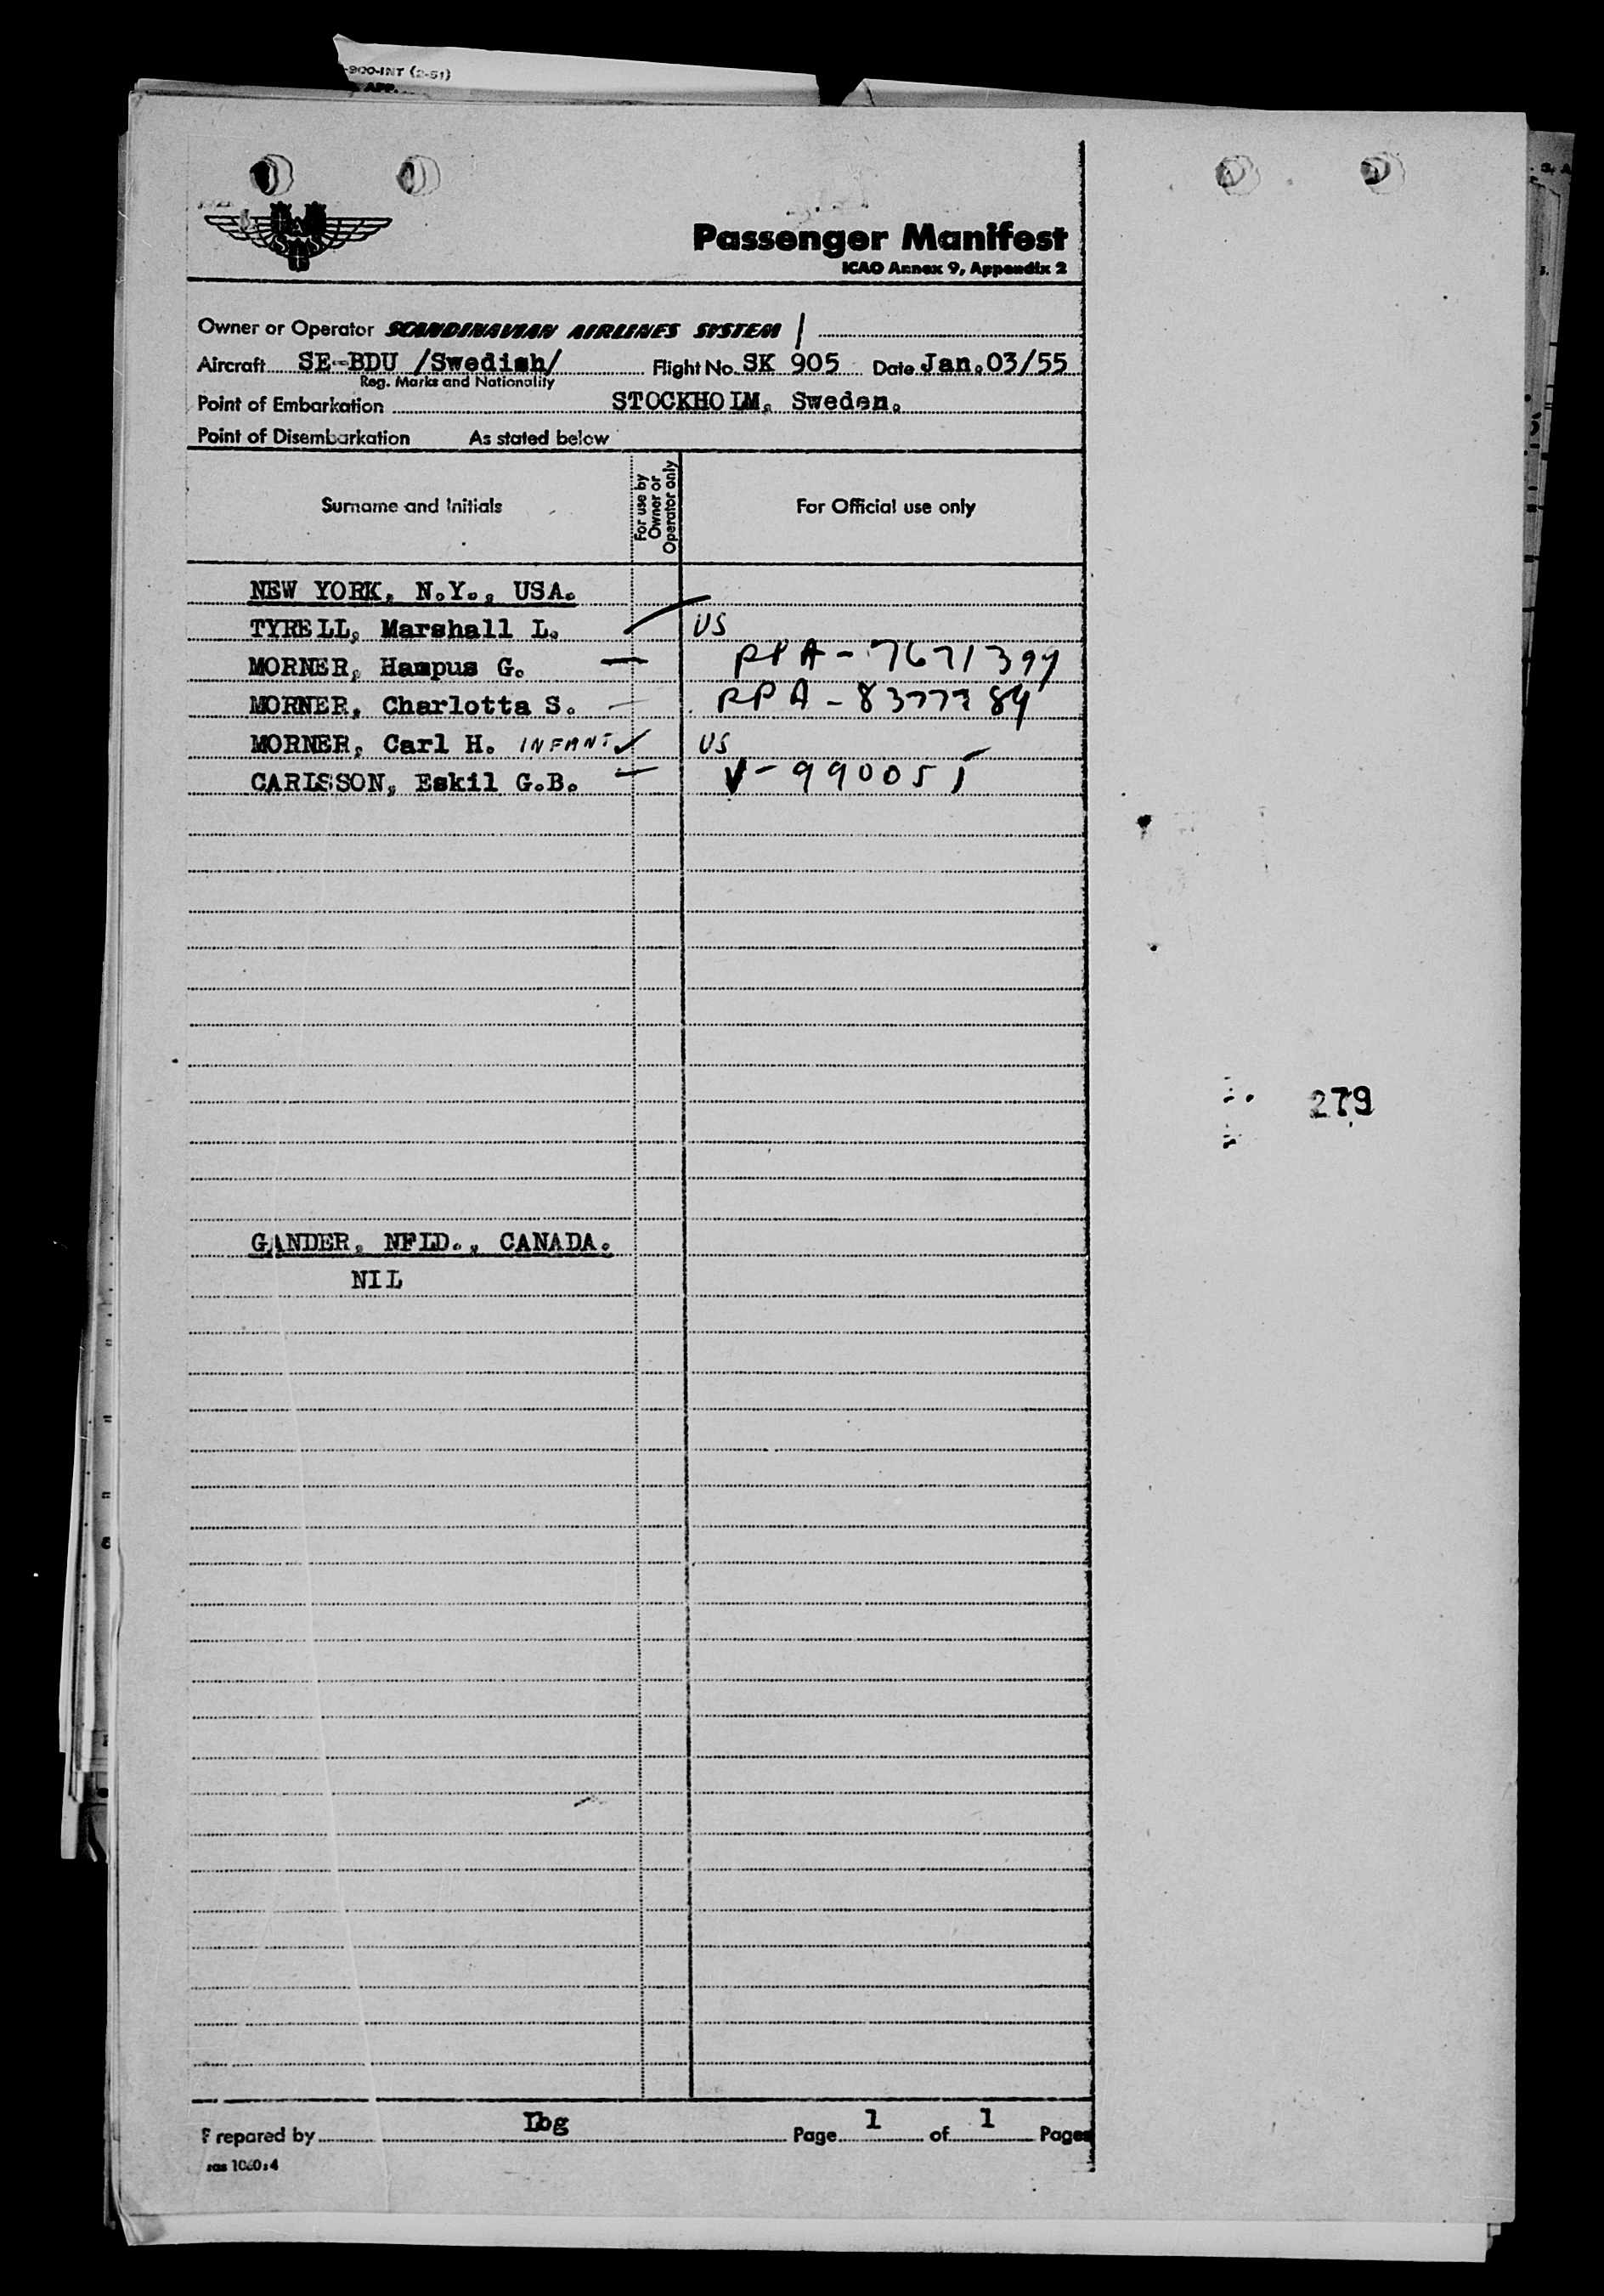 -900-INT (2-51)
APP.
Passenger Manifest
ICAO Annex 9, Appendix 2
Owner or Operator SCANDINAVIAN AIRLINES SYSTEM
Aircraft SE-BDU /Swedish/ Flight No. SK 905 Date Jan.03/55
Reg. Marks and Nationality
Point of Embarkation STOCKHOLM, Sweden.
Point of Disembarkation As stated below
Surname and Initials For use by Owner or Operator only For Official use only
NEW YORK, N.Y., USA.
TYRELL, Marshall L. US
MORNER, Hampus G. RPA-7671394
MORNER, Charlotta S. RPA-8377784
MORNER, Carl H. INFANT US
CARLSSON, Eskil G.B. V-990055
279
GANDER, NFLD., CANADA.
NIL
Prepared by Lbg Page 1 of 1 Pages
sas 1060:4